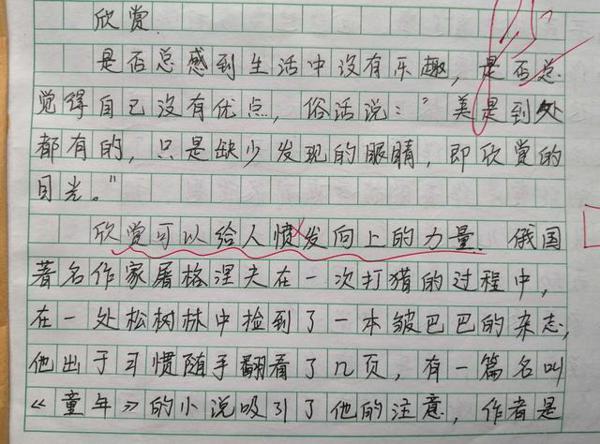 欣赏
是否总感到生活中没有乐趣，是否总
觉得自己没有优点，俗话说："美是到处
都有的，只是缺少发现的眼睛，即欣赏的
目光。"
欣赏可以给人愤发向上的力量。俄国
著名作家屠格涅夫在一次打猎的过程中，
在一处松树林中捡到了一本皱巴巴的杂志，
他出于习惯随手翻看了几页，有一篇名叫
《童年》的小说吸引了他的注意，作者是